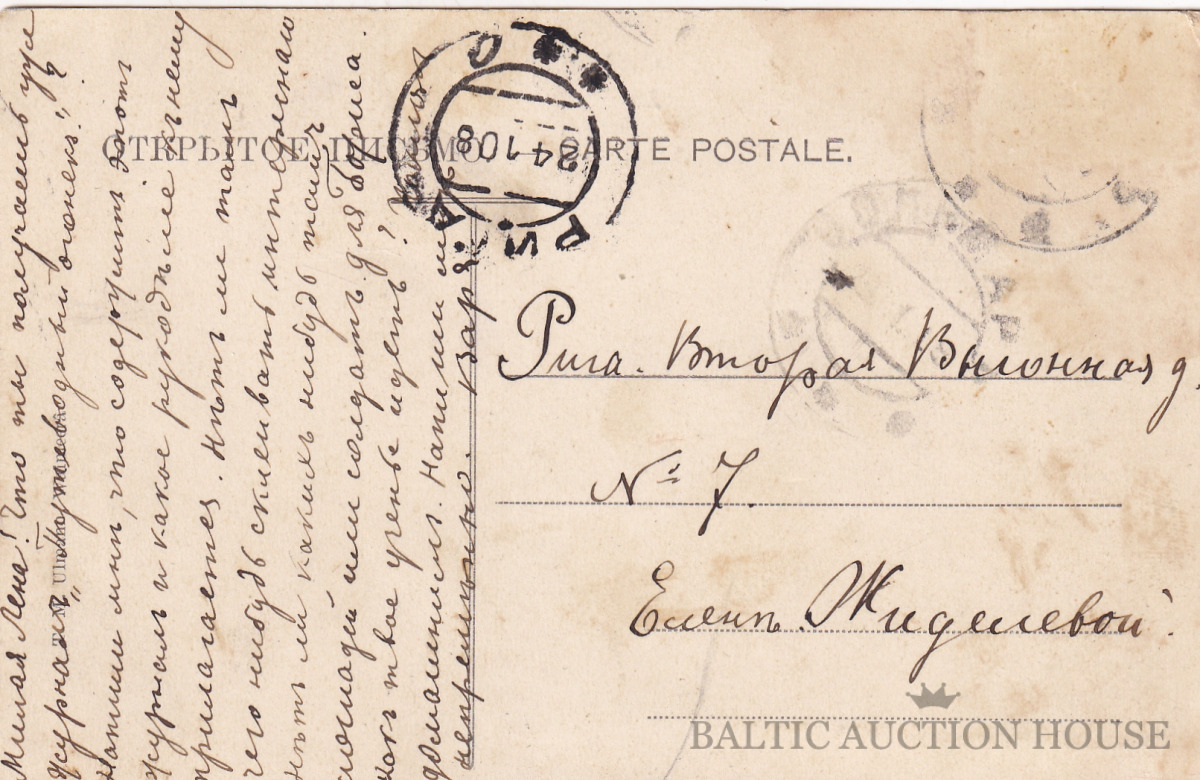 ОТКРЫТОЕ ПИСЬМО. — CARTE POSTALE.
РИГА
24 1 08
Рига. Вторая Выгонная д.
№ 7.
Еленѣ Жиделевой.
Милая Лена! Что ты получаешь уже
журналъ „Путеводный огонекъ“?
Напиши мнѣ, что содержитъ этотъ
журналъ и какое рукодѣлье къ нему
прилагается. Нѣтъ ли тамъ
чего нибудь склеивать интереснаго
нѣтъ ли какихъ нибудь
лошадей или солдатъ для Бориса.
Какъ твое ученье идетъ?
Напиши
непремѣнно. Варя.
BALTIC AUCTION HOUSE